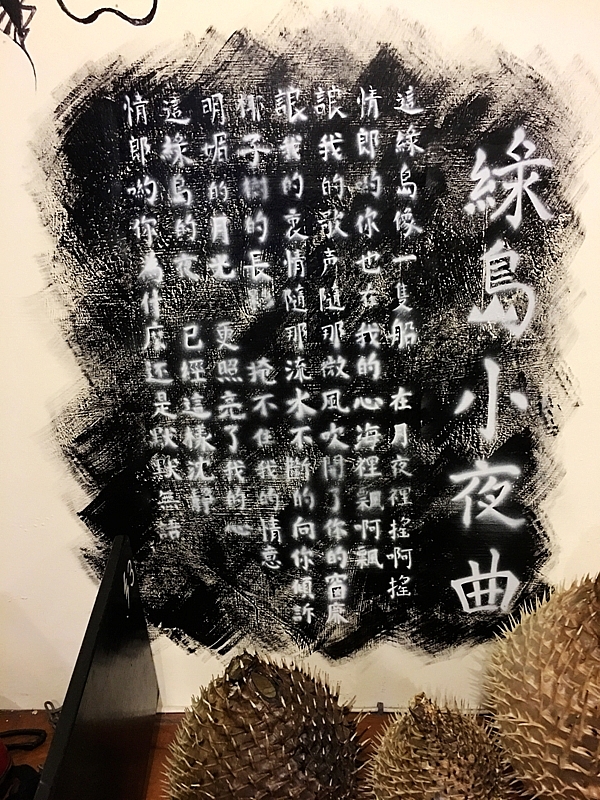 綠島小夜曲
這綠島像一隻船 在月夜裡搖啊搖
情郎哟你也在我的心海裡飄啊飄
誏我的歌声隨那微風吹開了你的窗簾
誏我的衷情隨那流水不斷的向你傾訴
椰子樹的長影 掩不住我的情意
明媚的月光 更照亮了我的心
這綠島的夜 已經這樣沈靜
情郎哟你為什庅还是默默無語